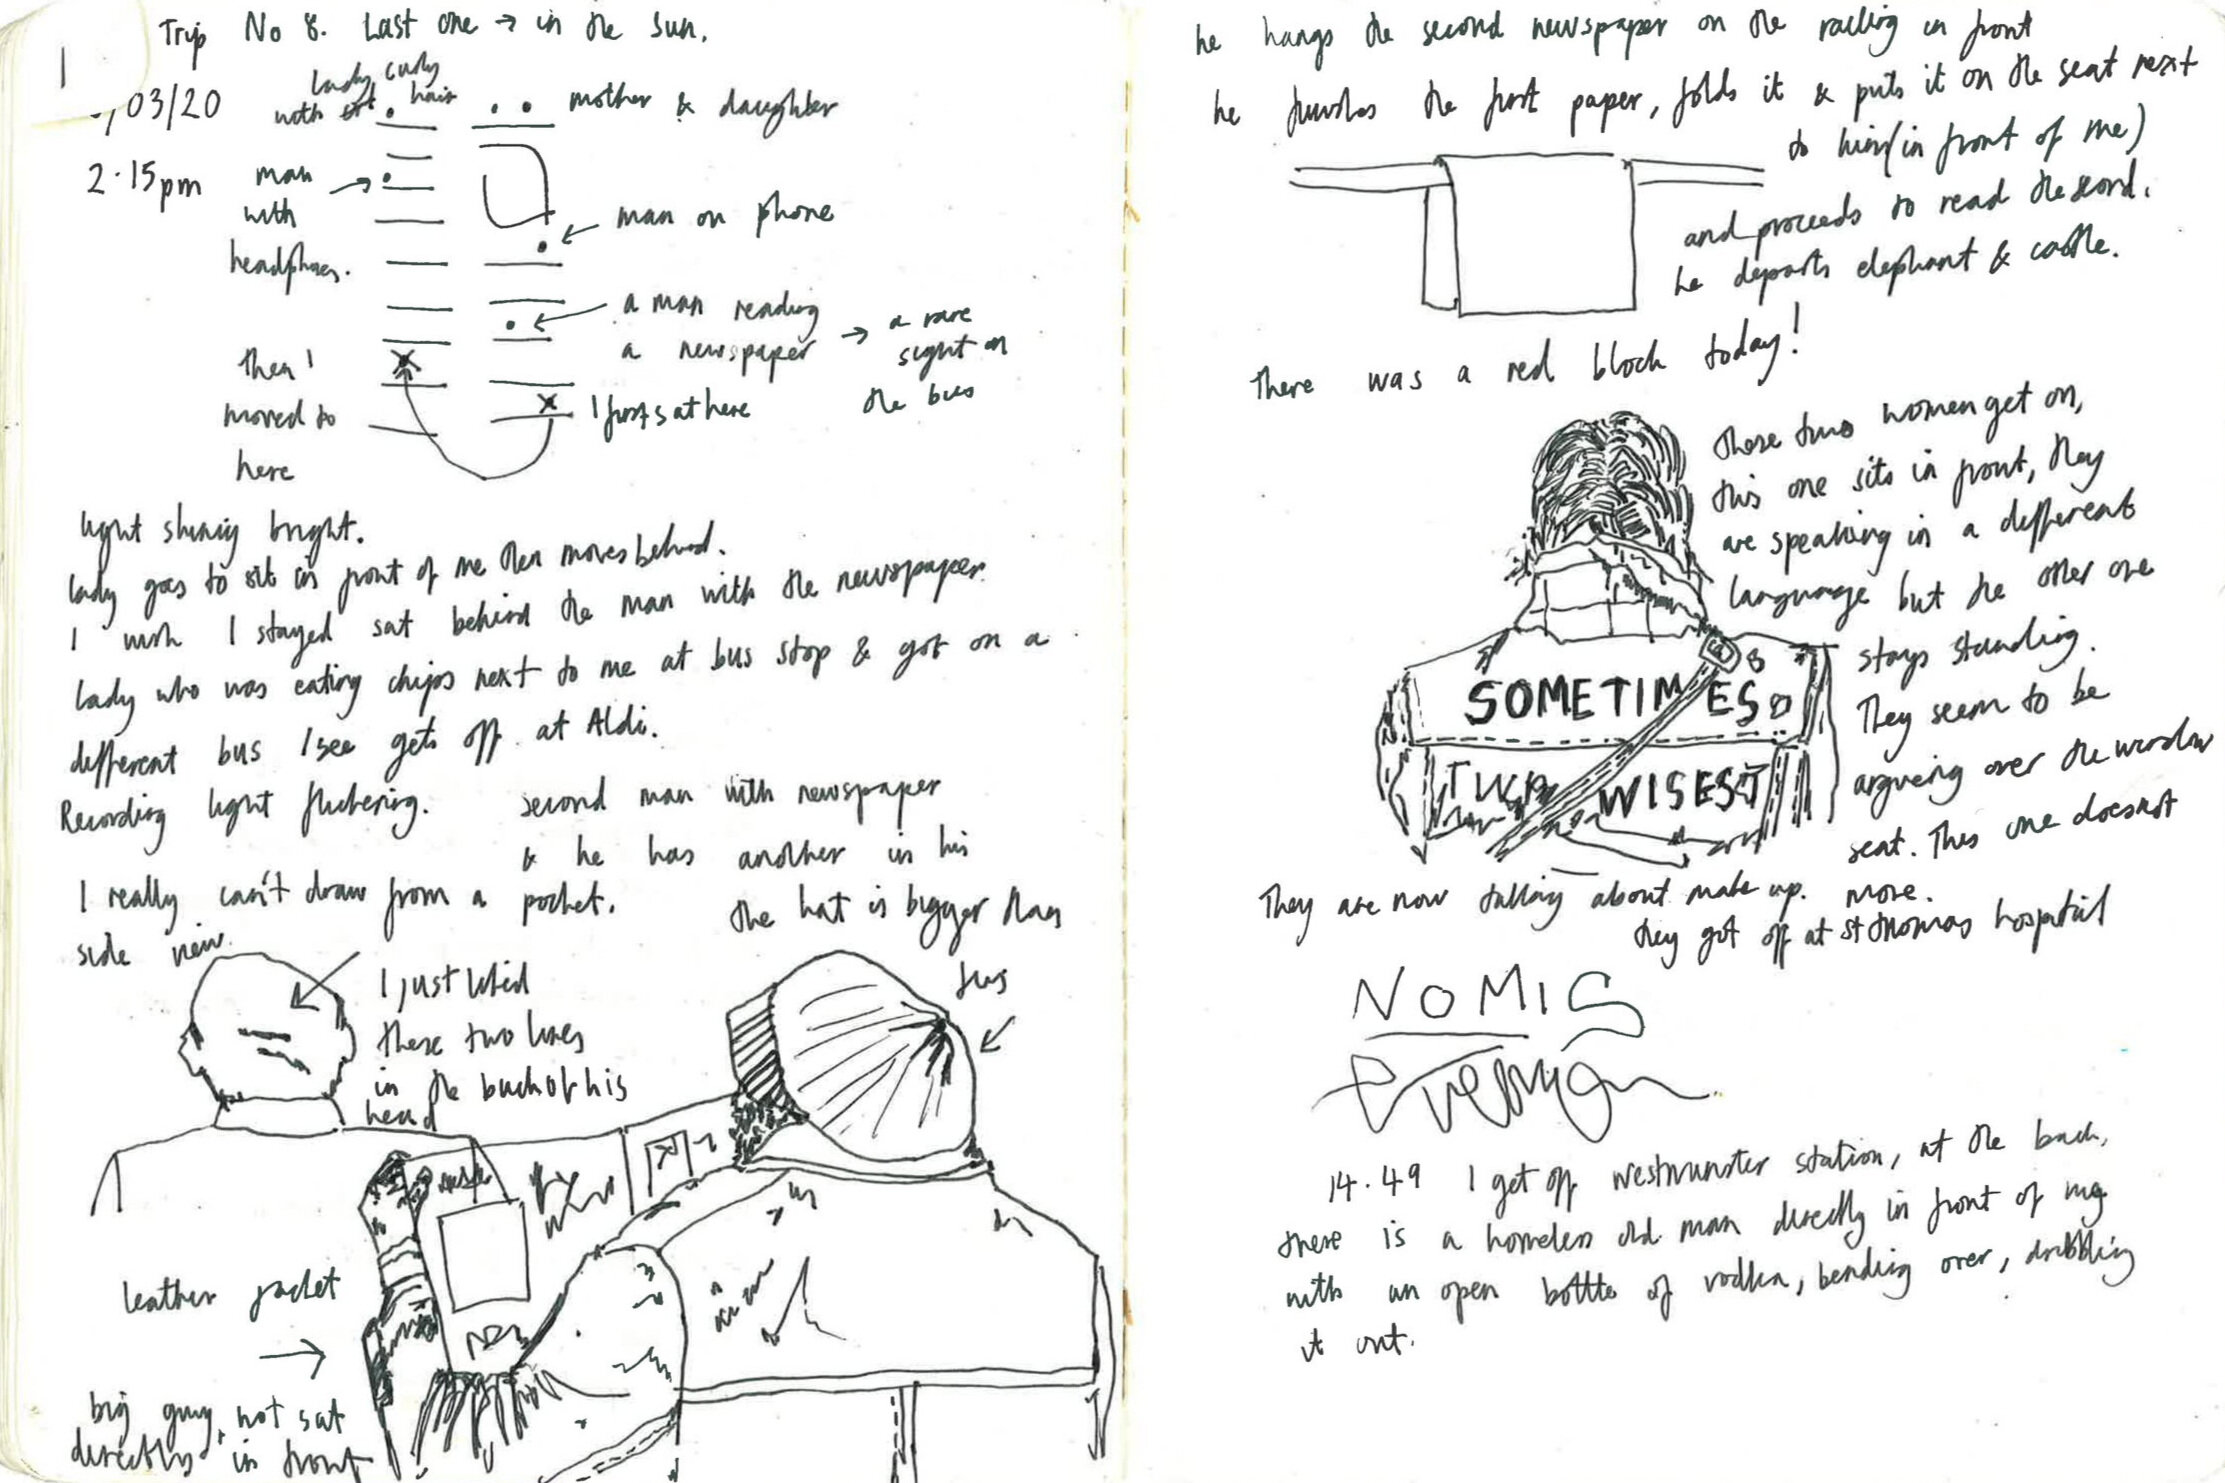 1
Trip No 8. Last one → in the sun.
/03/20
2.15pm
lady curly
with hair
mother & daughter
man
with
headphones.
man on phone
a man reading
a newspaper → a rare
sight on
the bus
then I
moved to
here
I first sat here
light shining bright.
lady goes to sit in front of me then moves behind.
I wish I stayed sat behind the man with the newspaper.
lady who was eating chips next to me at bus stop & got on a
different bus I see gets off at Aldi.
Recording light flickering.
second man with newspaper
& he has another in his
pocket.
I really can't draw from a
side view.
the hat is bigger than
this
I just liked
these two lines
in the back of his
head
leather jacket
→
big guy, not sat
directly in front
he hangs the second newspaper on the railing in front
he finishes the first paper, folds it & puts it on the seat next
to him (in front of me)
and proceeds to read the second.
he departs elephant & castle.
There was a red block today!
These two women get on,
this one sits in front, they
are speaking in a different
language but the other one
stays standing.
They seem to be
argueing over the window
seat. This one does not
more.
SOMETIMES
WISEST
They are now talking about make up.
they got off at St Thomas hospital
NOMIS
14.49 I get off Westminster station, at the back,
there is a homeless old man directly in front of me
with an open bottle of vodka, bending over, dribbling
it out.